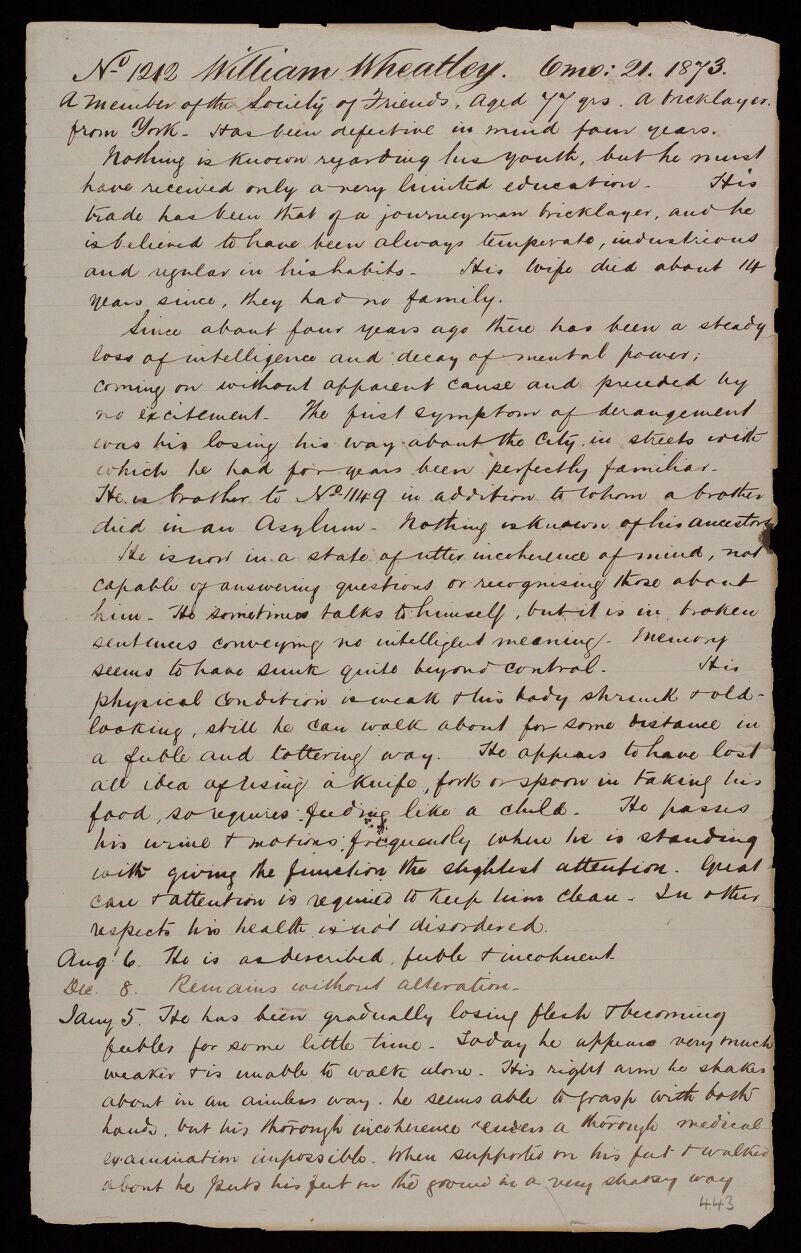 No 1212 William Wheatley. 6mo: 21. 1873.
A member of the Society of Friends. Aged 77 yrs. A bricklayer
from York - Has been defective in mind four years.
Nothing is known regarding his youth, but he must
have received only a very limited education - His
trade has been that of a journeyman bricklayer, and he
is believed to have been always temperate, industrious
and regular in his habits - His wife died about 14
years since, they had no family.
Since about four years ago there has been a steady
loss of intelligence and decay of mental power;
coming on without apparent cause and preceded by
no excitement - The first symptom of derangement
was his losing his way about the City, in streets with
which he had for years been perfectly familiar -
He is brother to No 1149 in addition to whom a brother
died in an Asylum - Nothing is known of his ancestors
He is now in a state of utter incoherence of mind, not
capable of answering questions or recognising those about
him - He sometimes talks to himself, but it is in broken
sentences conveying no intelligent meaning. Memory
seems to have sunk quite beyond control. His
physical condition is weak & his body shrunk & old-
looking, still he can walk about for some distance in
a feeble and tottering way. He appears to have lost
all idea of using a knife, fork or spoon in taking his
food, so requires feeding like a child. He passes
his urine & motions frequently where he is standing
with giving the function the slightest attention. Great
care & attention is required to keep him clean - In other
respects his health is not disordered.
Aug 6. He is as described, feeble & incoherent
Dec. 8. Remains without alteration -
Jany 5. He has been gradually losing flesh & becoming
feebler for some little time - Today he appears very much
weaker & is unable to walk alone. His right arm he shakes
about in an aimless way. he seems able to grasp with both
hands, but his thorough incoherence renders a thorough medical
examination impossible. When supported on his feet & walked
about he puts his feet on the ground in a very shakey way
443